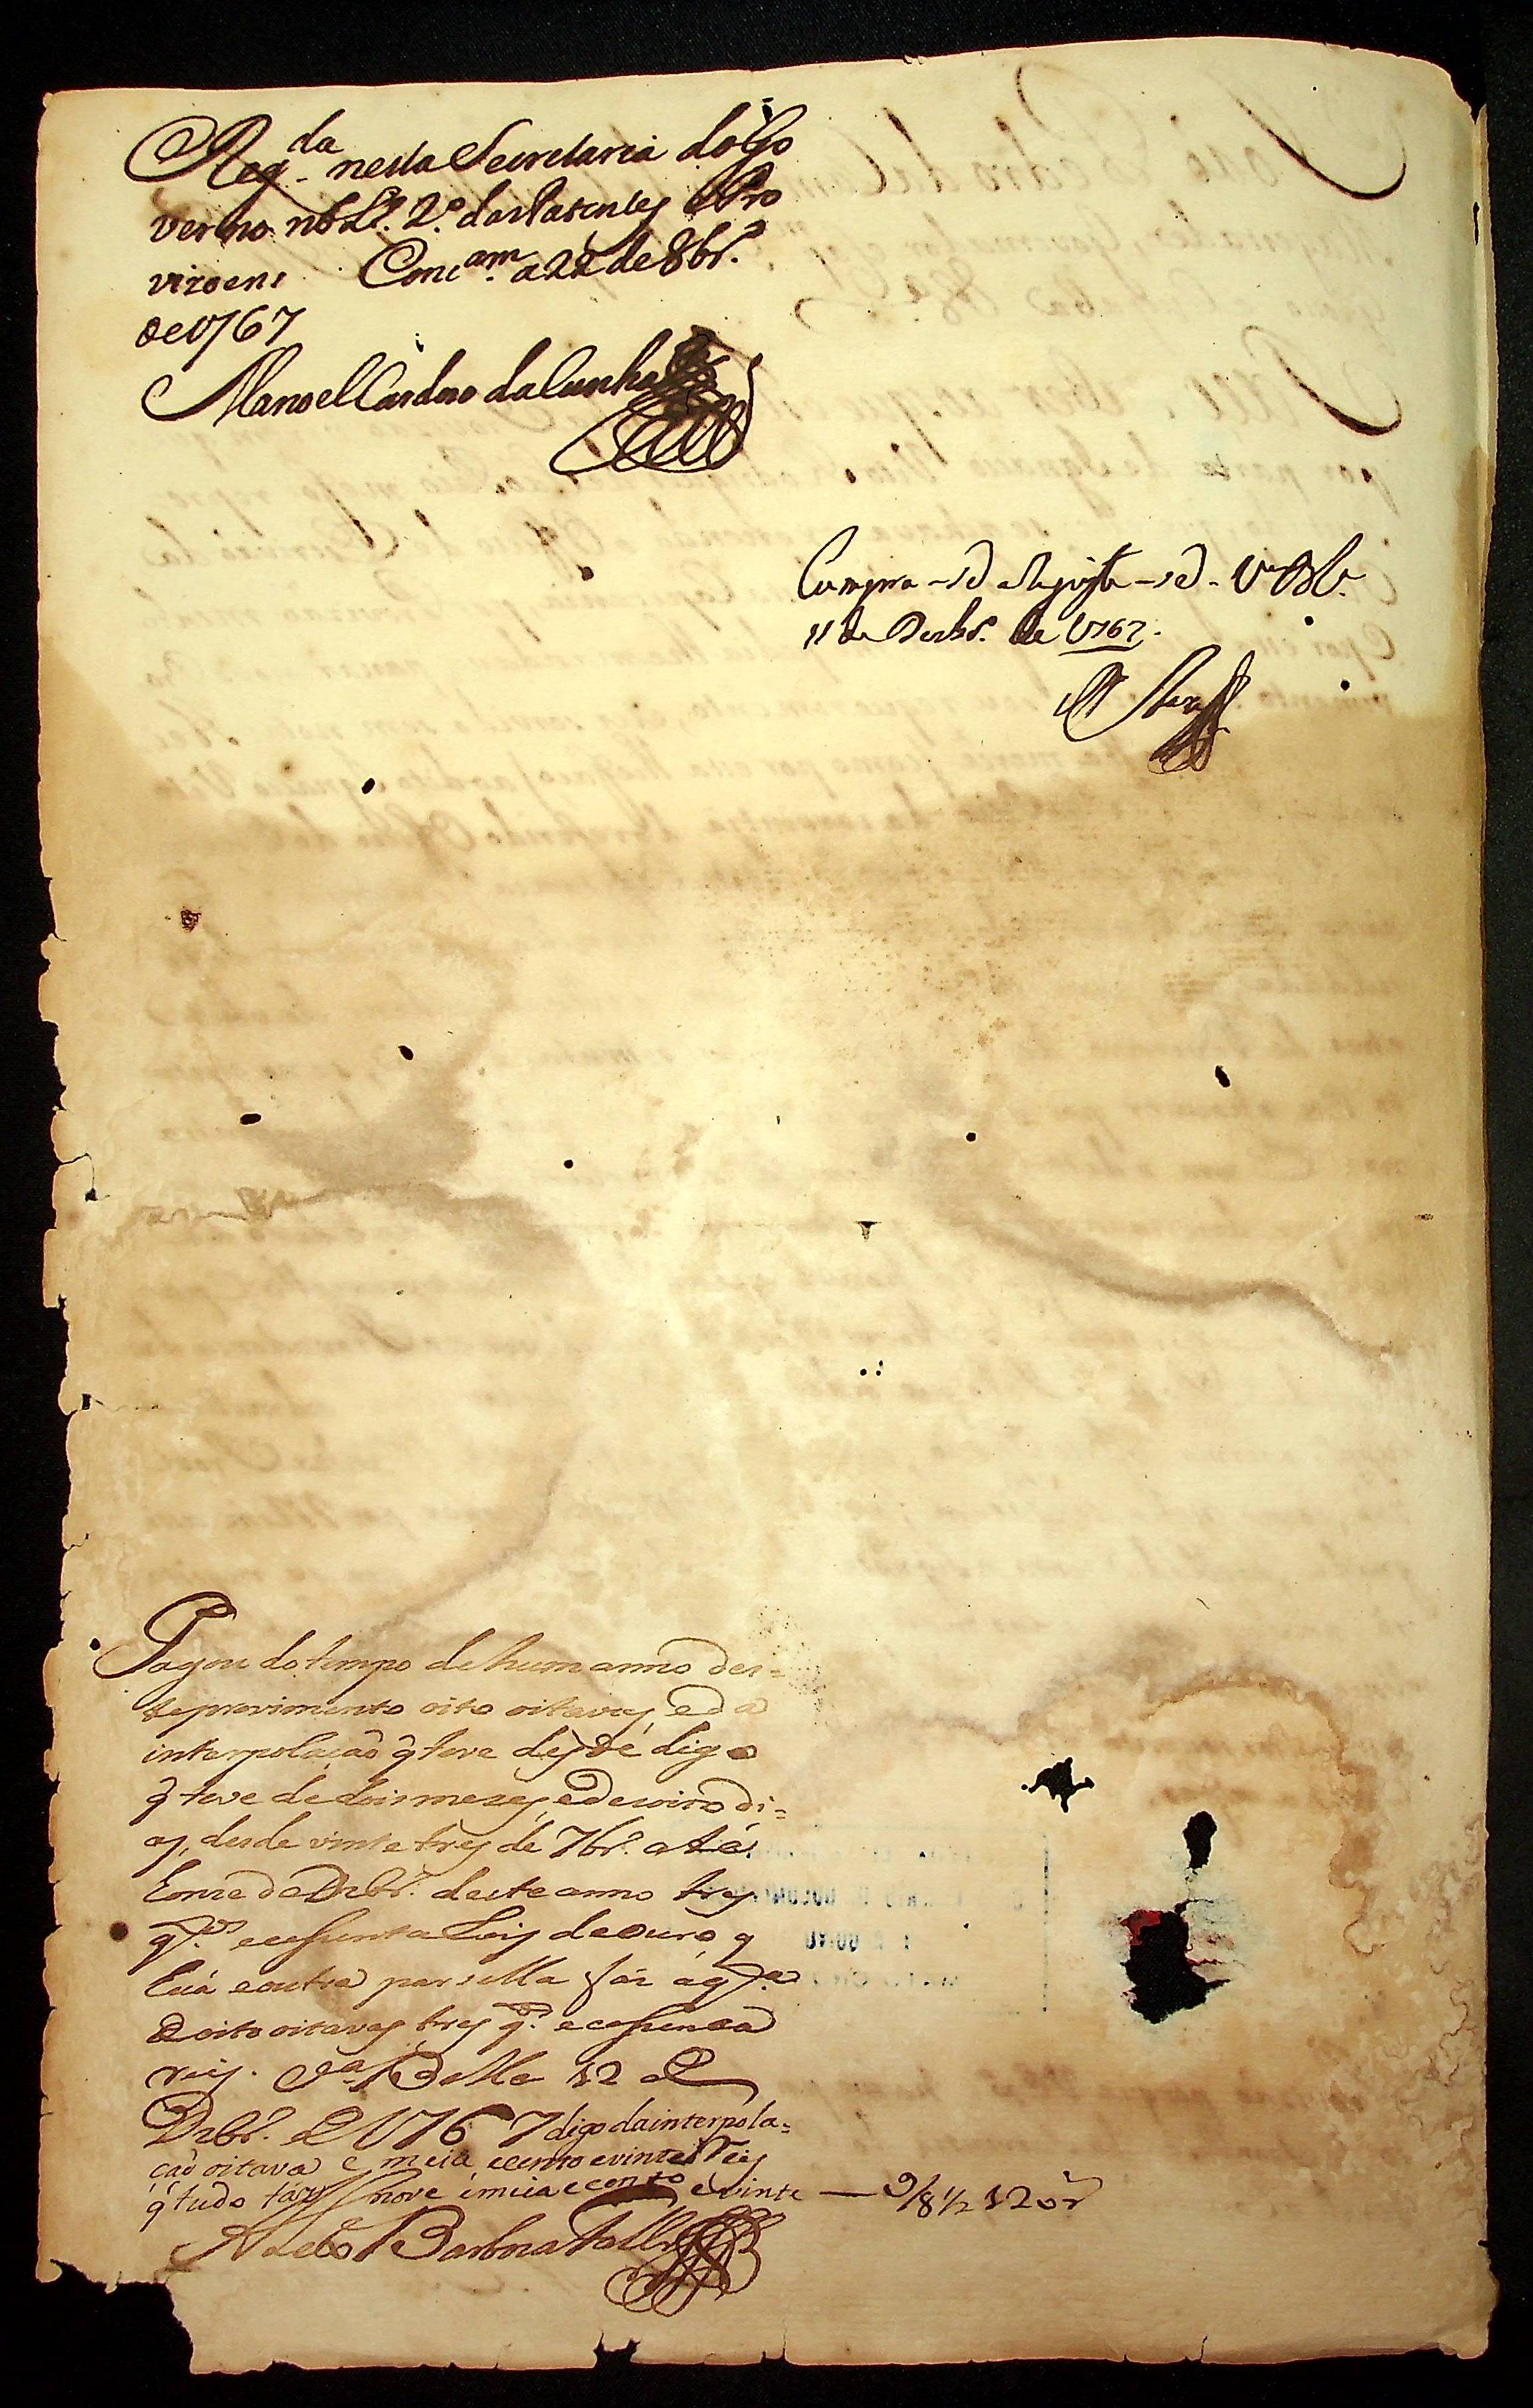 Reg.da nesta Secretaria do Go
verno no L.º 2.º das Patentes e Pro
vizoens Conc.am a 22 de 8br.º
de 1767
Manoel Cardozo da Cunha
Cumpra-se e Registe-se. V.ª B.ª
11 de Dezbr.º de 1767.
Pagou do tempo de hum anno des=
te provimento oito oitavas, e da
interpolação q̃ teve desde digo
q̃ teve de dois mezes, e dezoito di=
as, desde vinte tres de 7br.º até
honze de Dzbr.º deste anno tres
q.tos e cessenta Reis de ouro, q̃
huã e outra parsella fás a q.ta
de oito oitavas tres q.tos e cessenta
reis. V.ª Bella 12 de
Dzbr.º de 1767 digo da interpola=
çaõ oitava e meia e cento e vinte Reis
q̃ tudo fáz nove e meia e cento e vinte — 9/8 1/2 120 r
Barboza